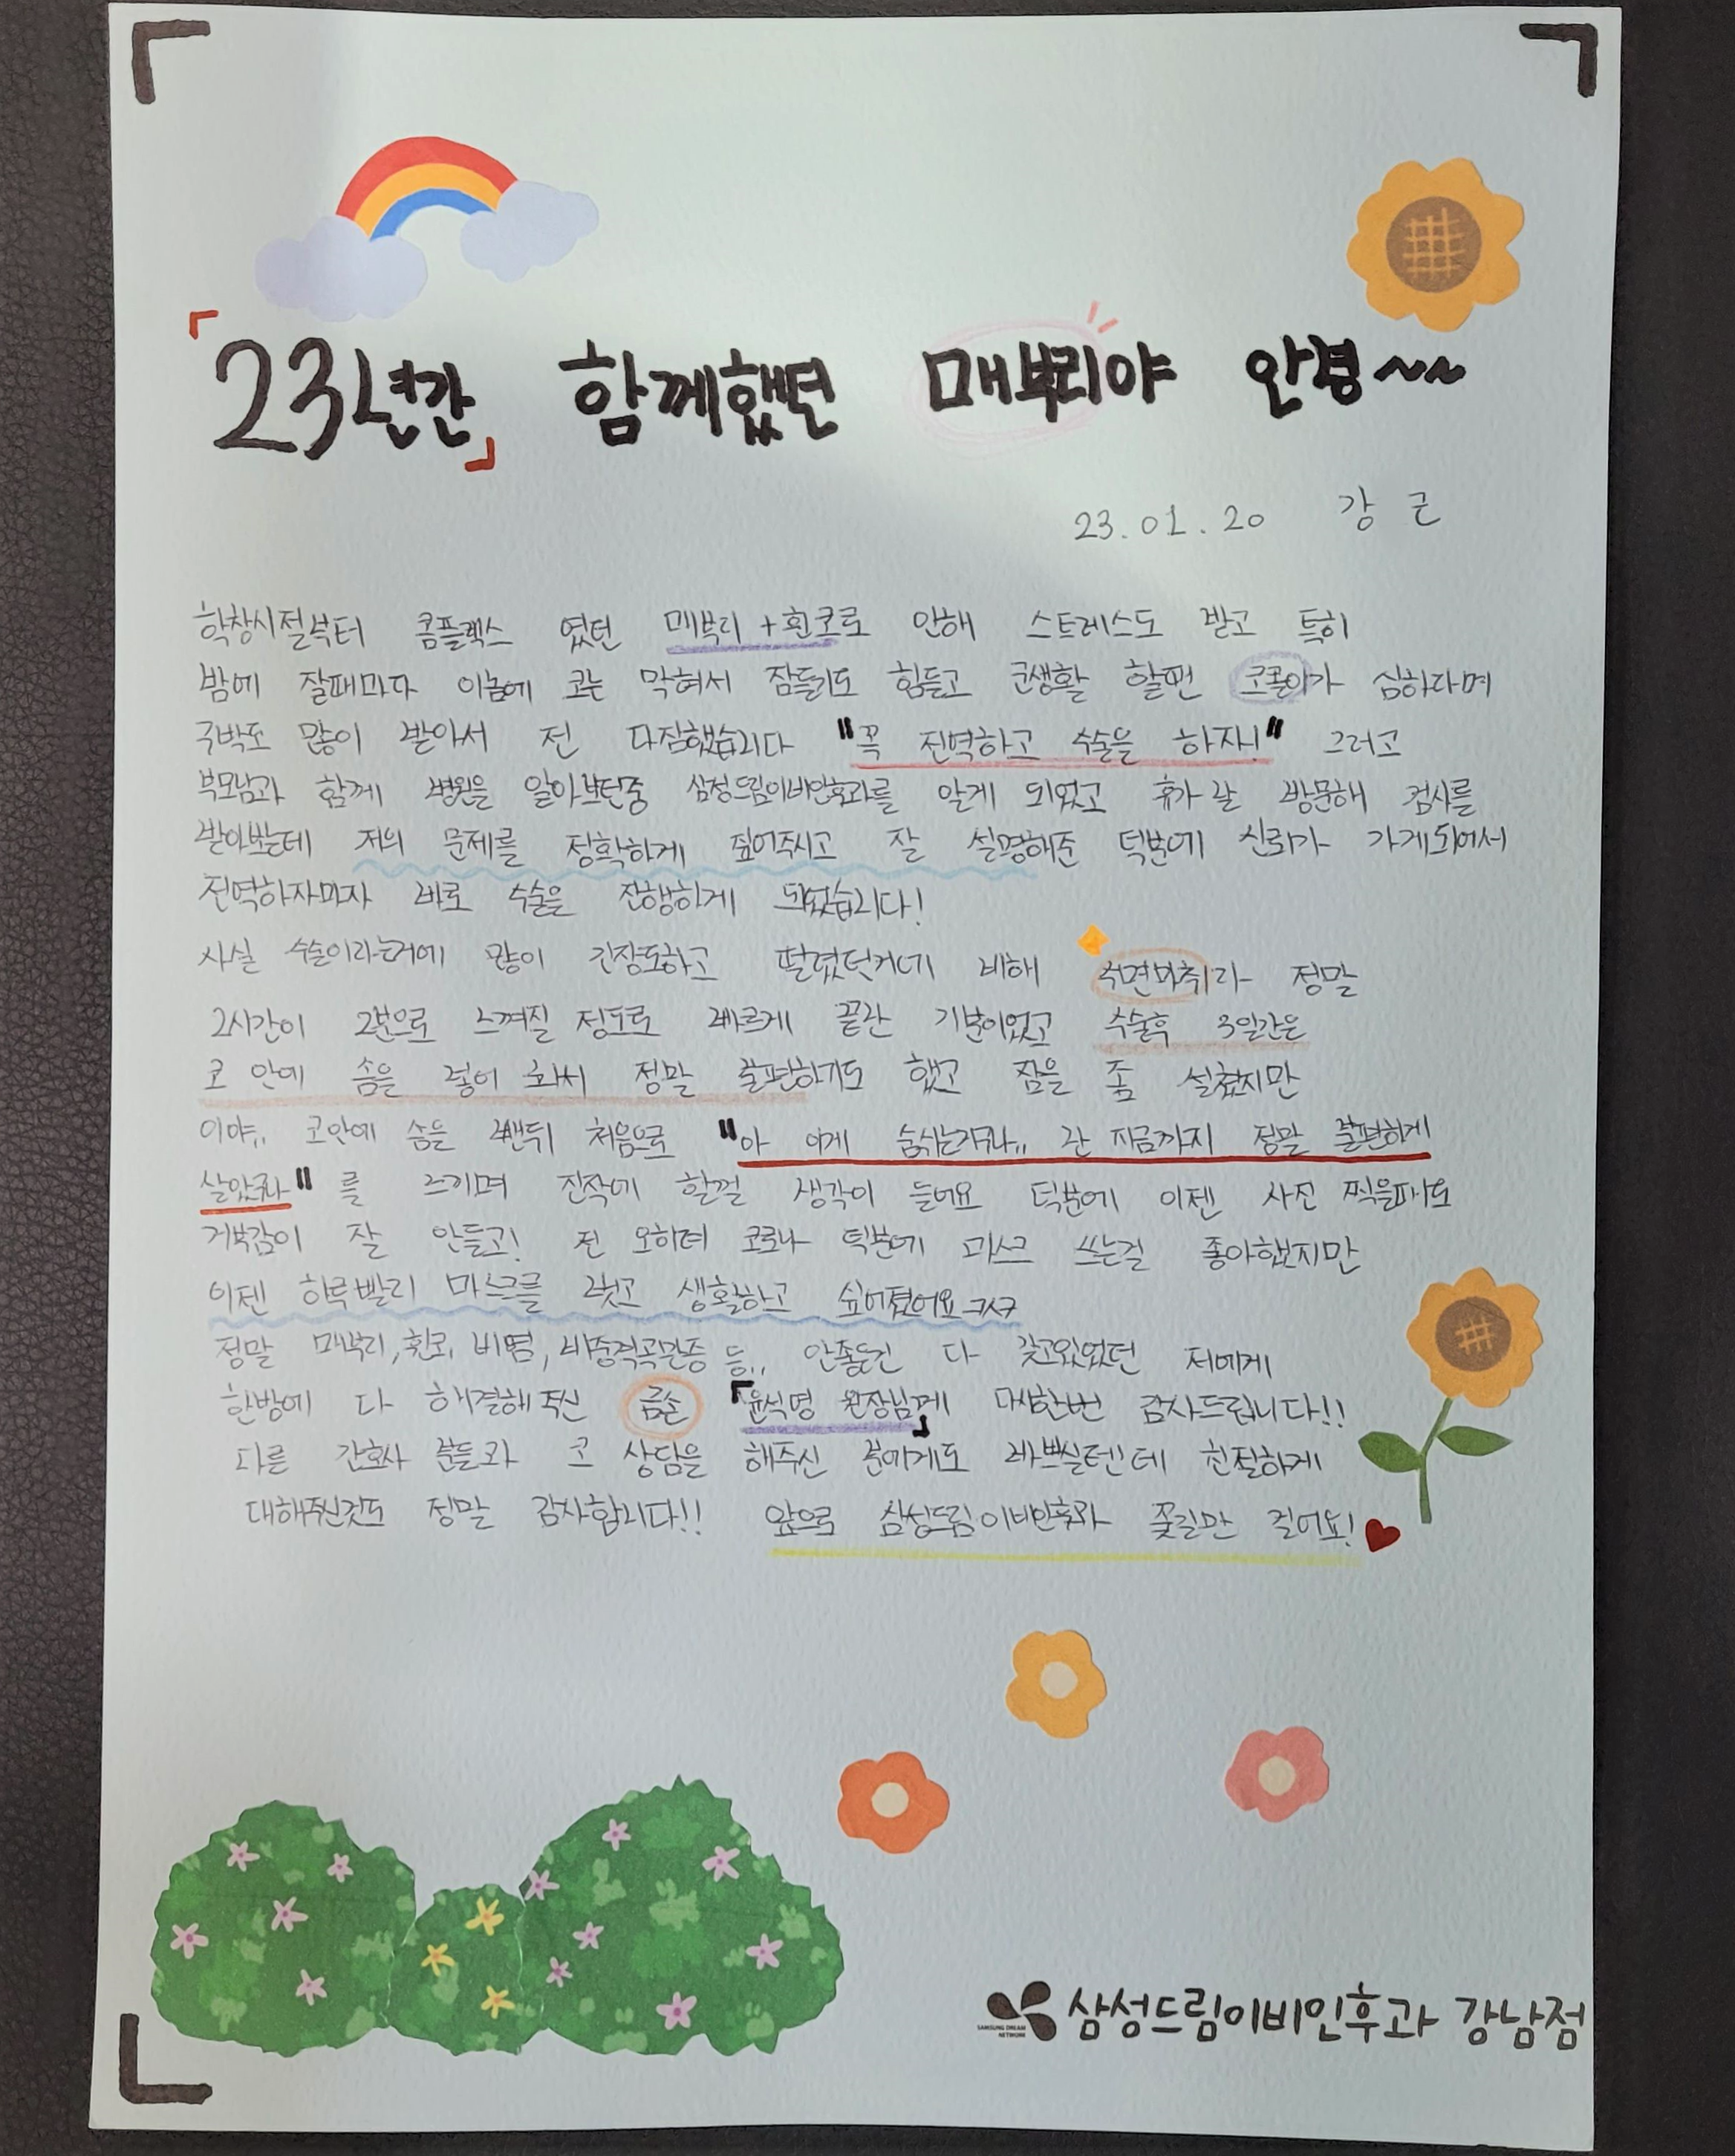 「23년간」 함께했던 매부리야 안녕~~
23.01.20 강 근
학창시절부터 콤플렉스 였던 매부리+휜코로 인해 스트레스도 받고 특히
밤에 잘때마다 이놈에 코는 막혀서 잠들기도 힘들고 군생활 할땐 코골이가 심하다며
구박도 많이 받아서 전 다짐했습니다 "꼭 전역하고 수술을 하자!" 그러고
부모님과 함께 병원을 알아보던중 삼성드림이비인후과를 알게 되었고 휴가 날 방문해 검사를
받아봤는데 저의 문제를 정확하게 짚어주시고 잘 설명해준 덕분에 신뢰가 가게되어서
전역하자마자 바로 수술을 진행하게 되었습니다!
사실 수술이라는거에 많이 긴장도하고 떨렸던거에 비해 수면마취라 정말
2시간이 2분으로 느껴질 정도로 빠르게 끝난 기분이었고 수술후 3일간은
코 안에 솜을 넣어 놔서 정말 불편하기도 했고 잠을 좀 설쳤지만
이야.. 코안에 솜을 뺀뒤 처음으로 "아 이게 숨쉬는거구나.. 난 지금까지 정말 불편하게
살았구나" 를 느끼며 진작에 할걸 생각이 들어요 덕분에 이젠 사진 찍을때도
거북감이 잘 안들고! 전 오히려 코로나 덕분에 마스크 쓰는걸 좋아했지만
이젠 하루빨리 마스크를 벗고 생활하고 싶어졌어요ㅋㅋㅋ
정말 매부리, 휜코, 비염, 비중격곡만증 등.. 안좋은건 다 갖고있었던 저에게
한방에 다 해결해 주신 금손 「윤석명 원장님께」 다시한번 감사드립니다!!
다른 간호사 분들과 코 상담을 해주신 분에게도 바쁘실텐데 친절하게
대해주신것도 정말 감사합니다!! 앞으로 삼성드림이비인후과 꽃길만 걸어요!
SAMSUNG DREAM NETWORK 삼성드림이비인후과 강남점